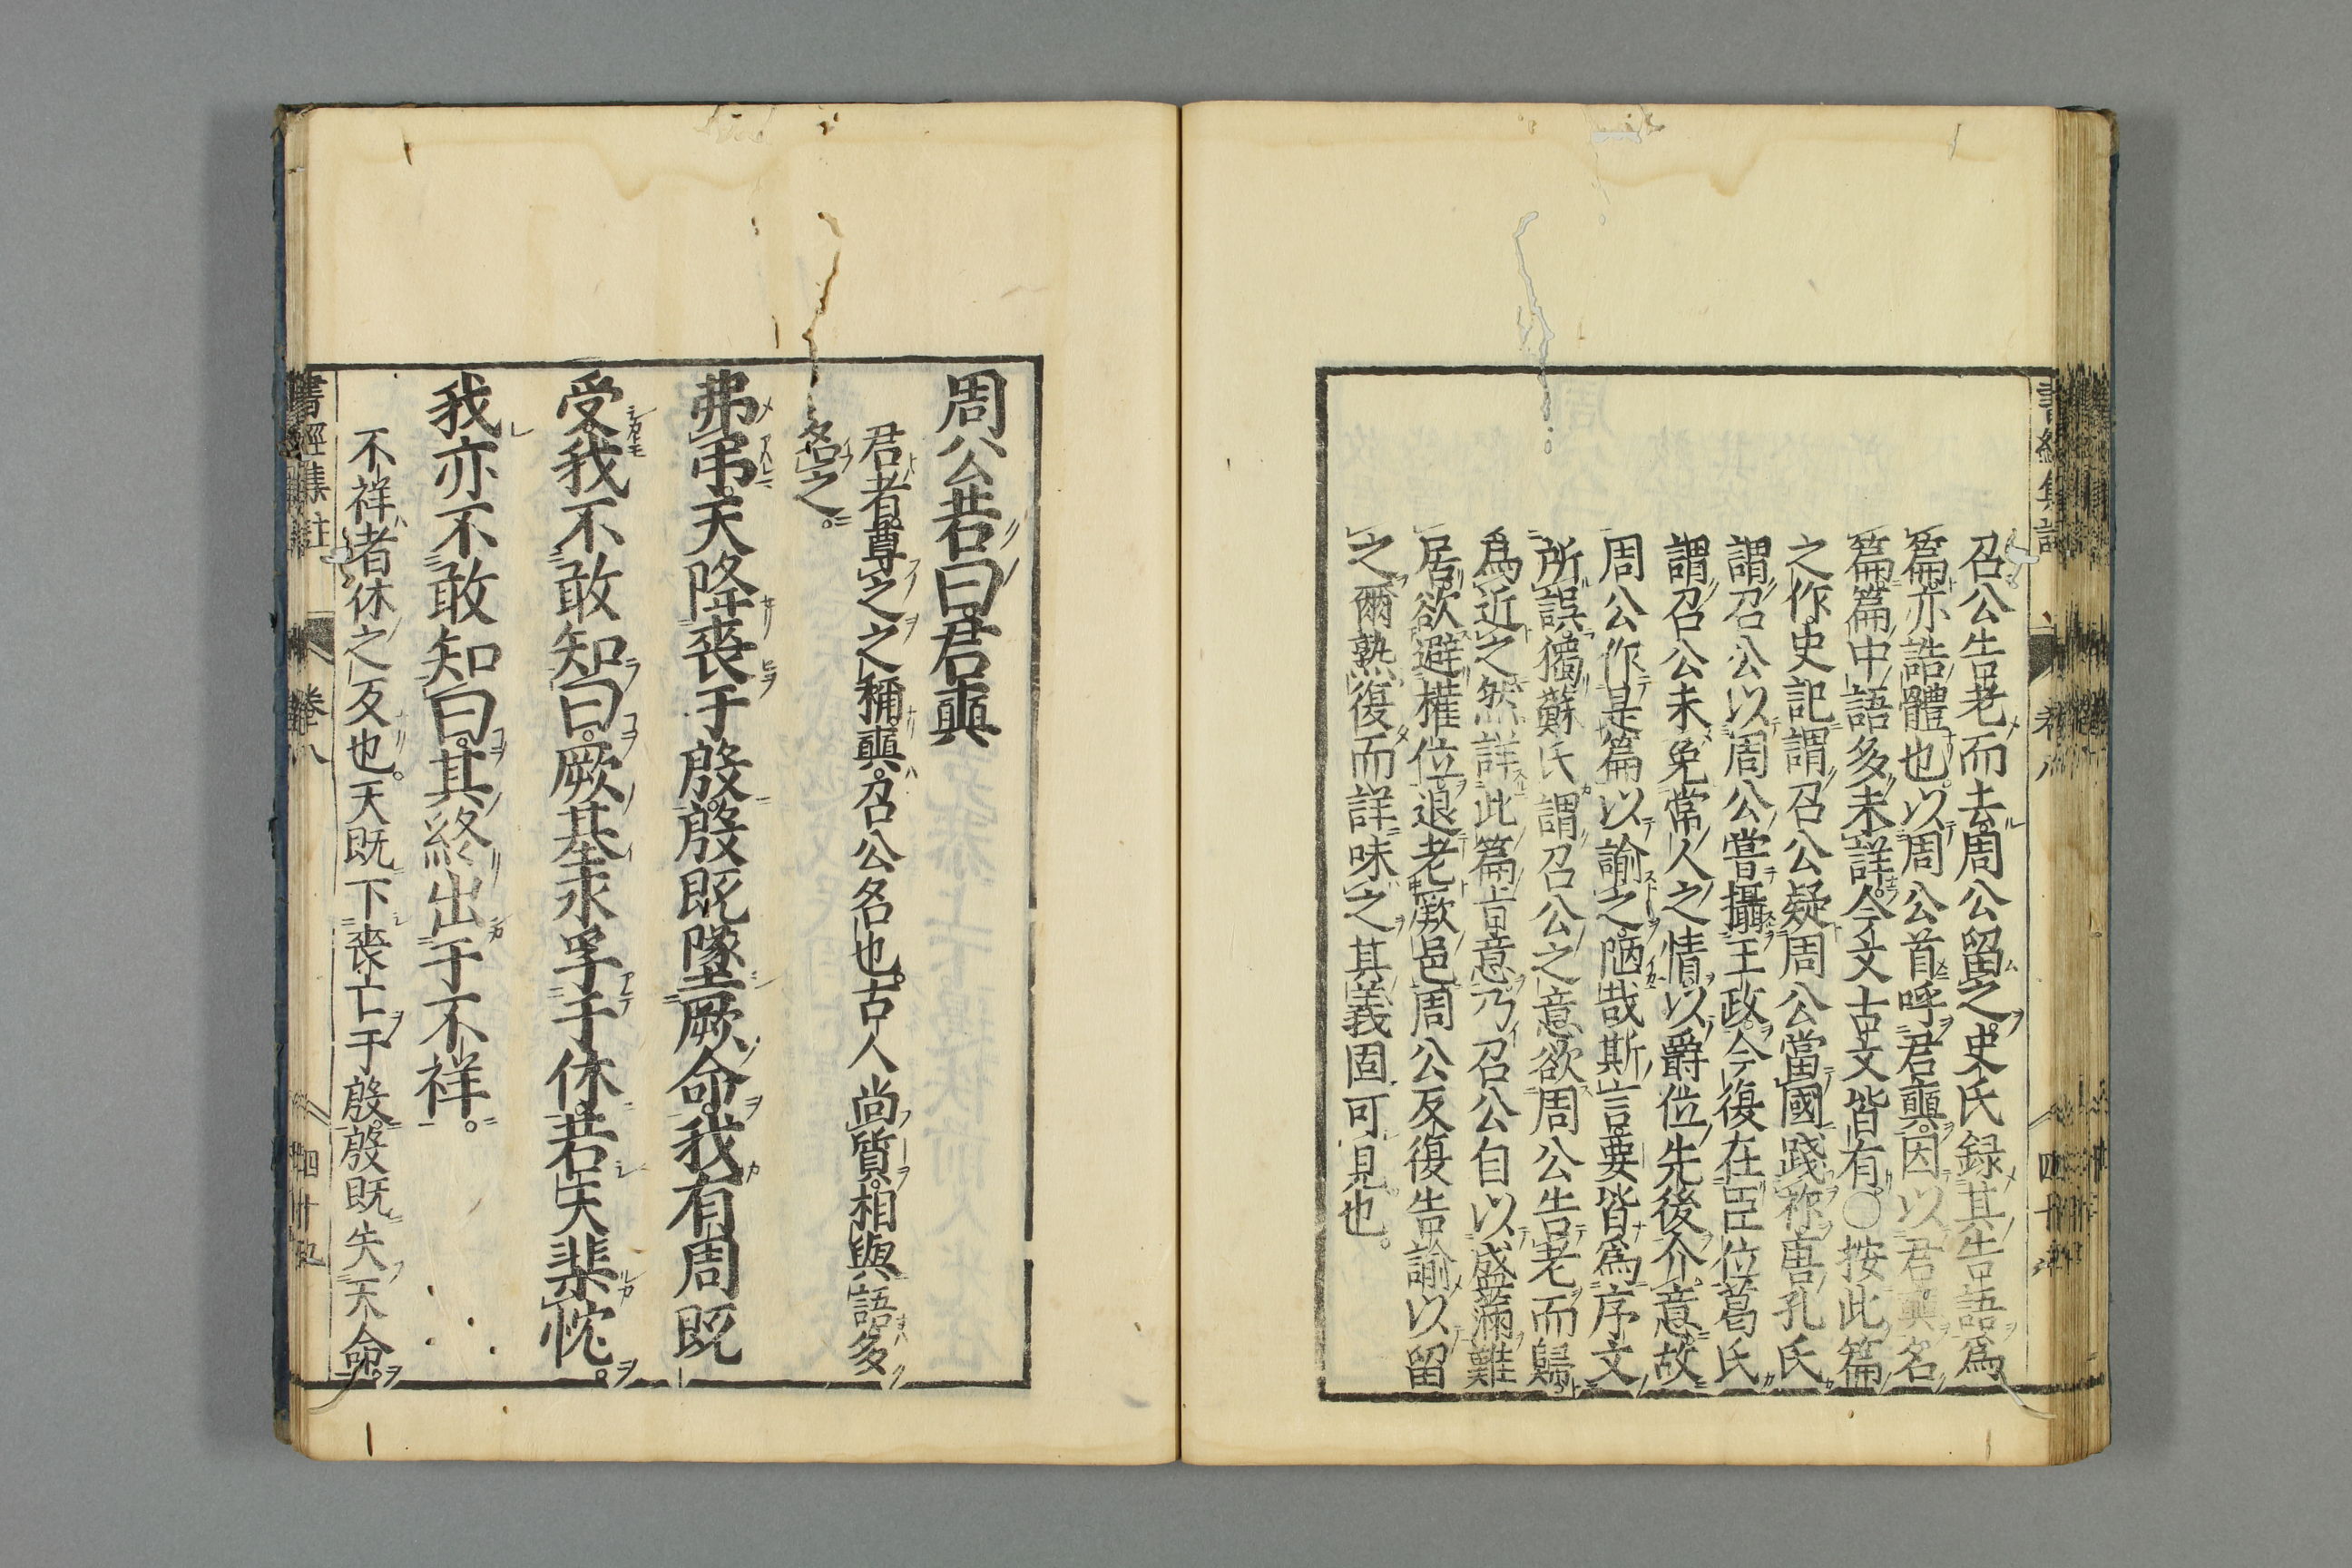 召公告老而去周公留之史氏録其告語爲
篇亦誥體也以周公首呼君奭因以君奭名
篇篇中語多未詳今文古文皆有○按此篇
之作史記謂召公疑周公當國踐祚唐孔氏
謂召公以周公嘗攝王政今復在臣位葛氏
謂召公未免常人之情以爵位先後介意故
周公作是篇以諭之陋哉斯言要皆爲序文
所誤獨蘇氏謂召公之意欲周公告老而歸
爲近之然詳此篇旨意乃召公自以盛滿難
居欲避權位退老厥邑周公反復告諭以留
之爾熟復而詳味之其義固可見也。
周公若曰君奭
君者尊之之稱奭召公名也。古人尚質相與語多
名之。
弗弔天降喪于殷殷既墜厥命我有周既
受我不敢知曰厥基永孚于休若天棐忱。
我亦不敢知曰其終出于不祥。
不祥者休之反也。天既下喪亡于殷殷既失天命。
書經集註 卷八 四十五